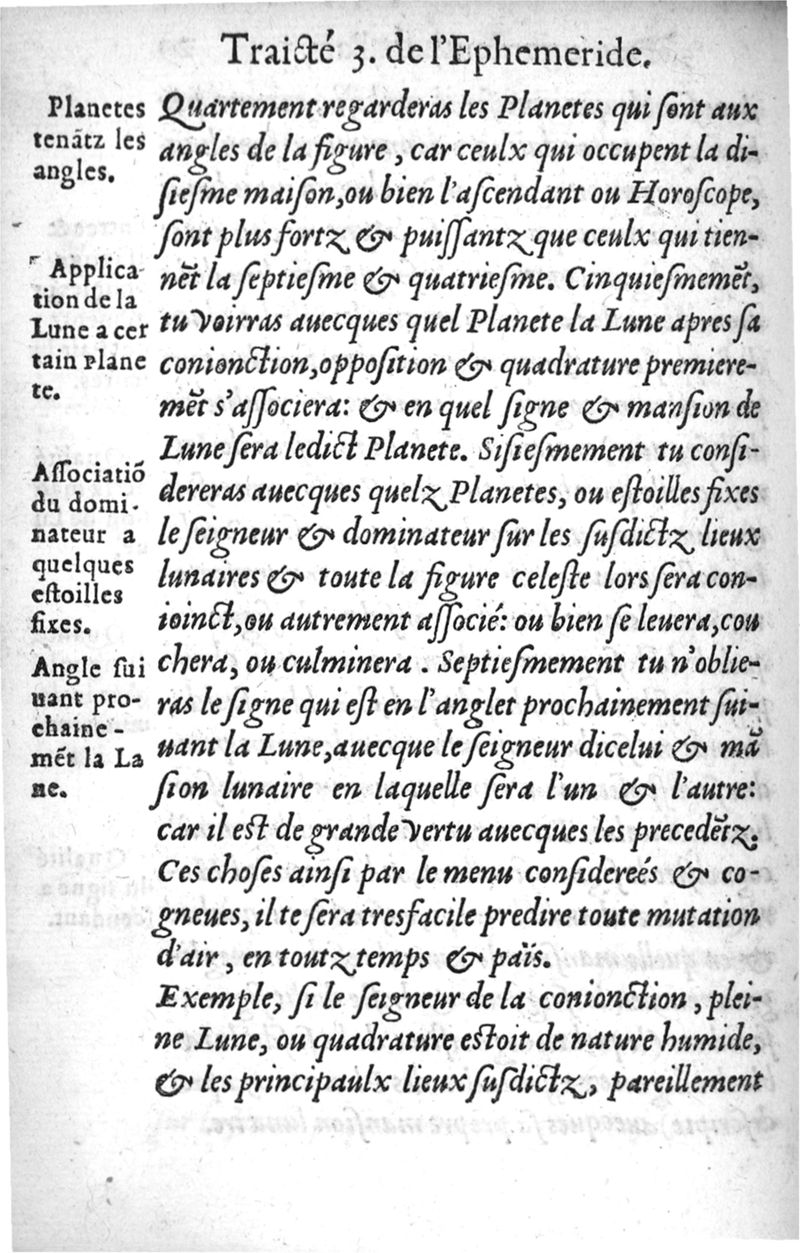 Traicté 3. de l'Ephemeride.
Planetes
tenãtz les
angles.
Applica
tion de la
Lune a cer
tain plane
te.
Associatiõ
du domi-
nateur a
quelques
estoilles
fixes.
Angle sui
uant pro-
chaine-
mẽt la La
ne.
Quartement regarderas les Planetes qui sont aux
angles de la figure, car ceulx qui occupent la di-
siesme maison, ou bien l'ascendant ou Horoscope,
sont plus fortz & puissantz que ceulx qui tien-
nẽt la septiesme & quatriesme. Cinquiesmemẽt,
tu voirras auecques quel Planete la Lune apres sa
conionction, opposition & quadrature premiere-
mẽt s'associera: & en quel signe & mansion de
Lune sera ledict Planete. Sisiesmement tu consi-
dereras auecques quelz Planetes, ou estoilles fixes
le seigneur & dominateur sur les susdictz lieux
lunaires & toute la figure celeste lors sera con-
ioinct, ou autrement associé: ou bien se leuera, cou
chera, ou culminera. Septiesmement tu n'oblie-
ras le signe qui est en l'anglet prochainement sui-
uant la Lune, auecque le seigneur dicelui & mã
sion lunaire en laquelle sera l'un & l'autre:
car il est de grande vertu auecques les precedẽtz.
Ces choses ainsi par le menu considereés & co-
gneues, il te sera tresfacile predire toute mutation
d'air, en toutz temps & païs.
Exemple, si le seigneur de la conionction, plei-
ne Lune, ou quadrature estoit de nature humide,
& les principaulx lieux susdictz, pareillement